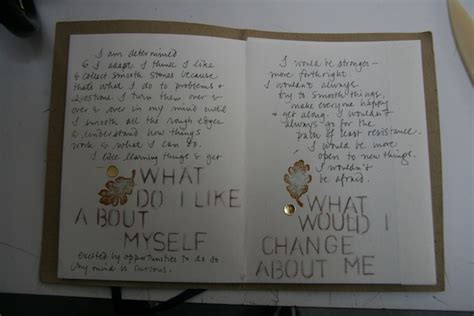 I am determined
& I adapt. I think I like
to collect smooth stones because
thats what I do to problems &
questions. I turn them over &
over & over in my mind until
I smooth all the rough edges
& understand how things
work & what I can do.
I like learning things & get
WHAT
DO I LIKE
ABOUT
MYSELF
excited by opportunities to do so.
My mind is curious.
I would be stronger -
more forthright
I wouldn't always
try to smooth things,
make everyone happy
& get along. I wouldn't
always go for the
path of least resistance.
I would be more
open to new things.
I wouldn't
be afraid.
WHAT
WOULD I
CHANGE
ABOUT ME